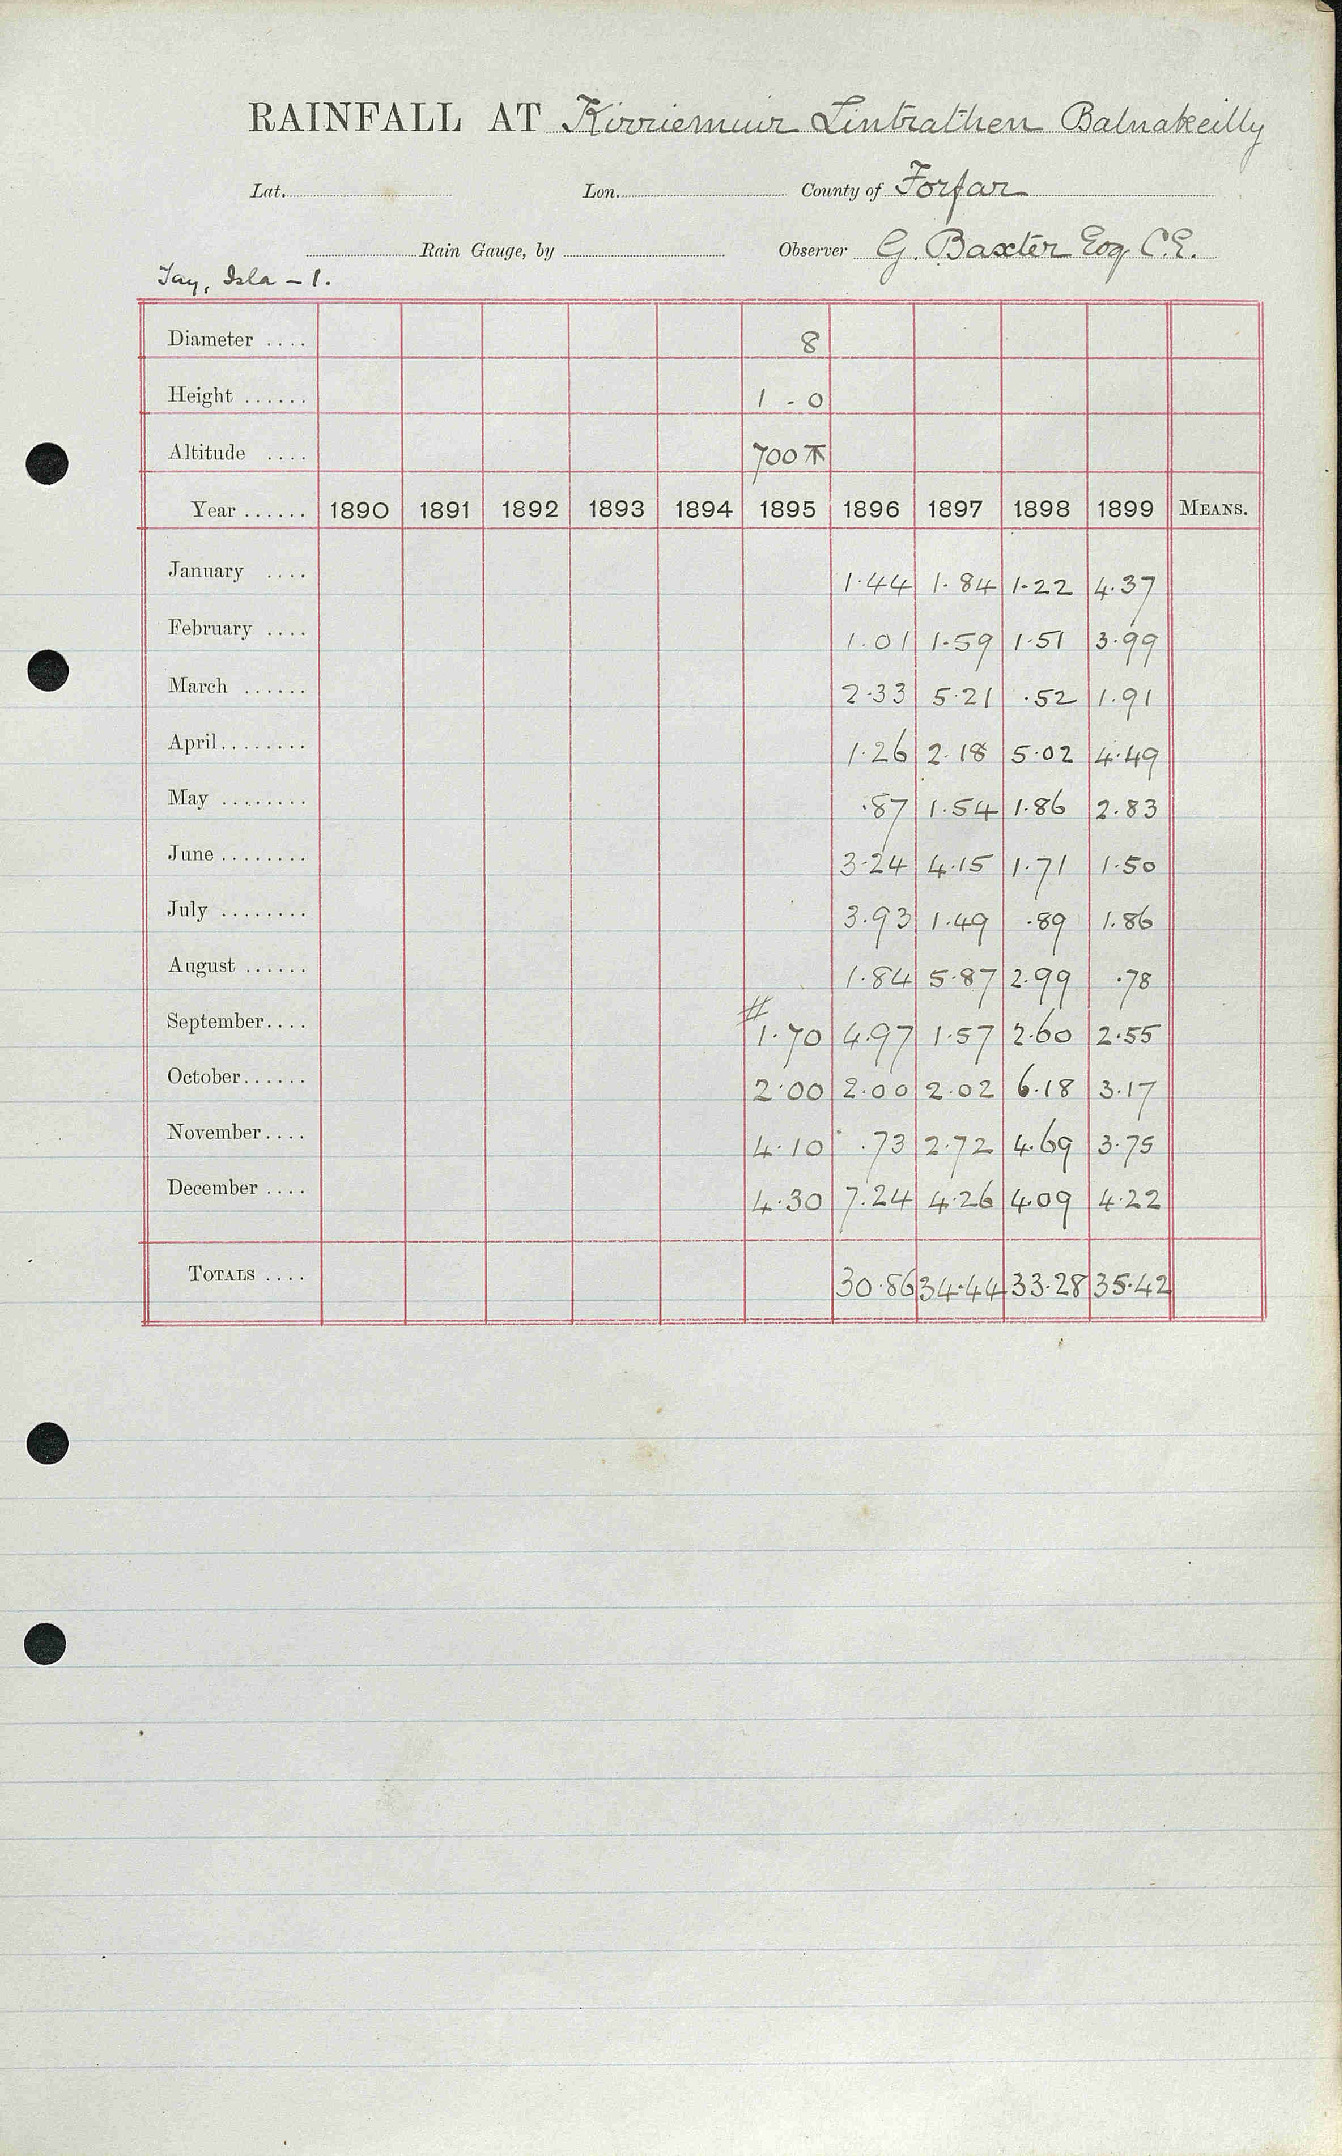 RAINFALL AT Kirriemuir Lintrathen Balnakeilly
Lat. Lon. County of Forfar
Rain Gauge, by Observer G. Baxter Esq C.E.
Tay, Isla – 1.
Diameter .... 8
Height ...... 1 - 0
Altitude .... 700
Year ...... 1890 1891 1892 1893 1894 1895 1896 1897 1898 1899 MEANS.
January .... 1.44 1.84 1.22 4.37
February .... 1.01 1.59 1.51 3.99
March ...... 2.33 5.21 .52 1.91
April ........ 1.26 2.18 5.02 4.49
May ........ .87 1.54 1.86 2.83
June ........ 3.24 4.15 1.71 1.50
July ........ 3.93 1.49 .89 1.86
August ...... 1.84 5.87 2.99 .78
September .... # 1.70 4.97 1.57 2.60 2.55
October ...... 2.00 2.00 2.02 6.18 3.17
November .... 4.10 .73 2.72 4.69 3.75
December .... 4.30 7.24 4.26 4.09 4.22
TOTALS .... 30.86 34.44 33.28 35.42